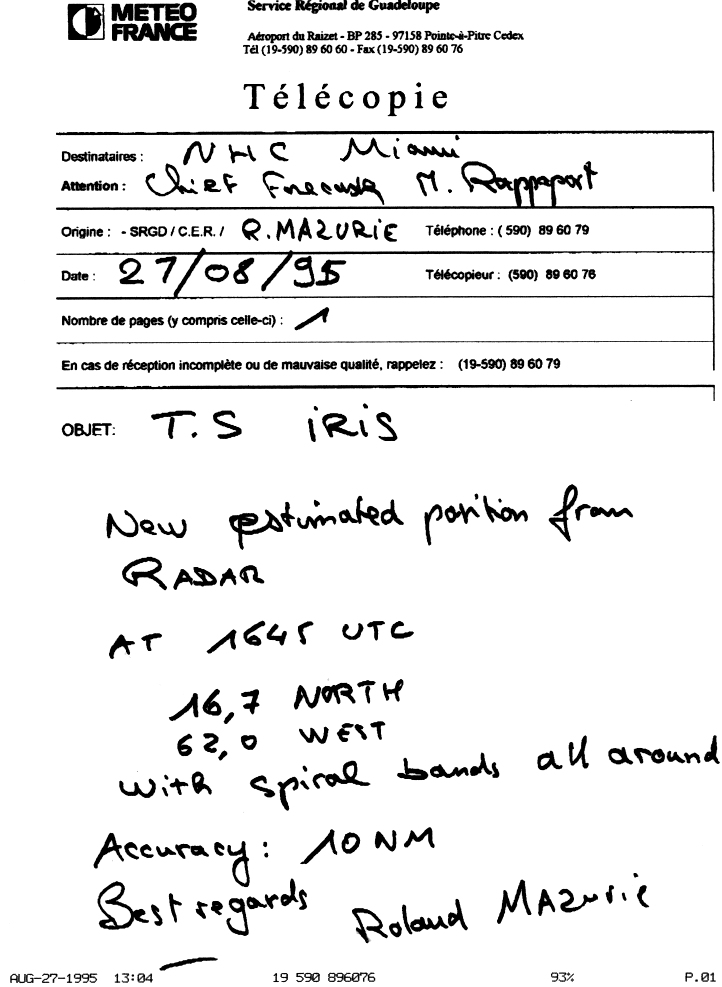 METEO
FRANCE
Service Régional de Guadeloupe
Aéroport du Raizet - BP 285 - 97158 Pointe-à-Pitre Cedex
Tél (19-590) 89 60 60 - Fax (19-590) 89 60 76
Télécopie
Destinataires : NHC Miami
Attention : Chief Forecaster M. Rappaport
Origine : - SRGD / C.E.R. / R. MAZURIE Téléphone : ( 590) 89 60 79
Date : 27/08/95 Télécopieur : (590) 89 60 76
Nombre de pages (y compris celle-ci) : 1
En cas de réception incomplète ou de mauvaise qualité, rappelez : (19-590) 89 60 79
OBJET: T.S IRIS
New estimated position from
RADAR
AT 1645 UTC
16,7 NORTH
62,0 WEST
with spiral bands all around
Accuracy : 10 NM
Best regards Roland MAZURIE
AUG-27-1995 13:04 19 590 896076 93% P.01